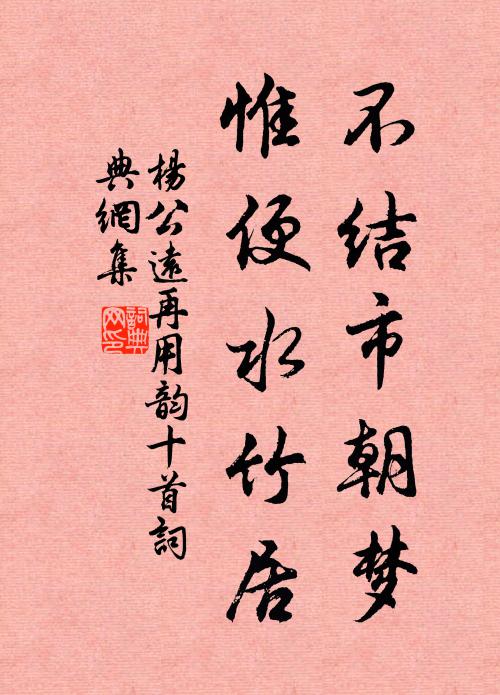 不结市朝梦
惟便水竹居
楊公遠再用韵十首詞
典網集
詞典
网印